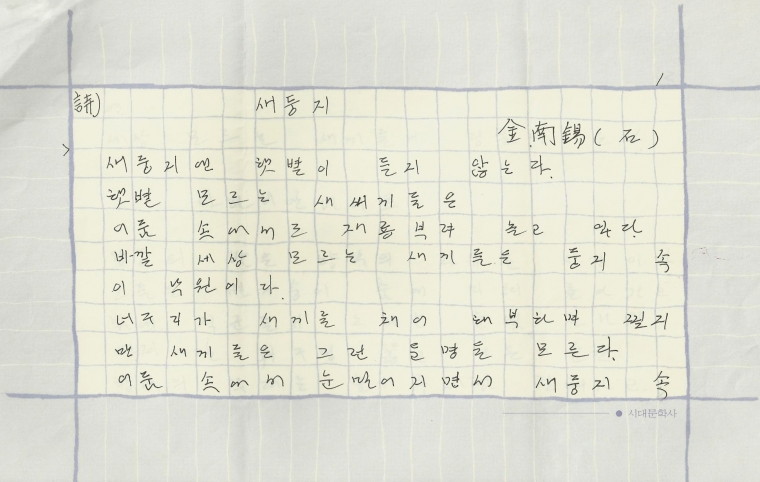 1
詩) 새둥지
金南錫(石)
새둥지엔 햇볕이 들지 않는다.
햇볕 모르는 새 새끼들은
어둠 속에서도 재롱부려 놀고 있다.
바깥 세상 모르는 새끼들은 둥지 속
이 낙원이다.
너구리가 새끼를 채어 해부하면 찢긴
만 새끼들은 그런 들명들 모른다.
어둠 속에서 눈멀어지면서 새둥지 속
● 시대문학사